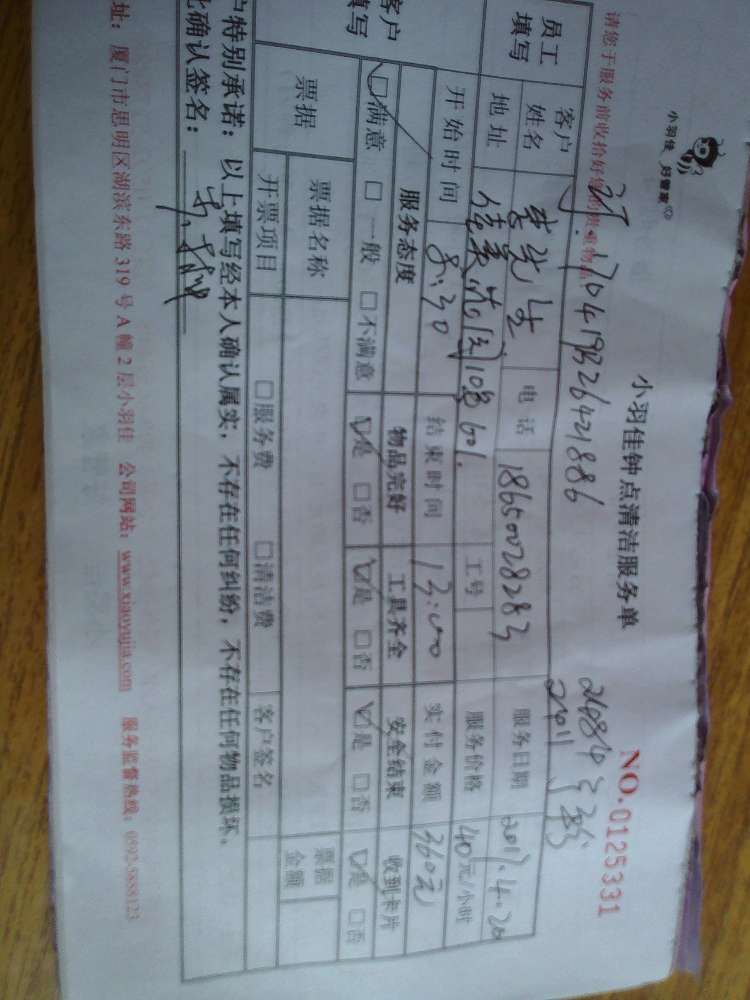 小羽佳 好管家
小羽佳钟点清洁服务单
NO.0125331
请您于服务前收拾好您的贵重物品
170419B26421886
员工填写
客户姓名 李先生 电话 18650028283 服务日期 2017.4.20
地址 10号601. 工号 服务价格 40元/小时
开始时间 8:30 结束时间 13:00 实付金额 360元
客户填写
服务态度 物品完好 工具齐全 安全结束 收到卡片
☑满意 □一般 □不满意 ☑是 □否 ☑是 □否 ☑是 □否 ☑是 □否
票据 票据名称 票据金额
开票项目 □服务费 □清洁费 客户签名
户特别承诺:以上填写经本人确认属实,不存在任何纠纷,不存在任何物品损坏,
此确认签名:
址:厦门市思明区湖滨东路319号A幢2层小羽佳 公司网站:www.xiaoyujia.com 服务监督热线:0592-5888123